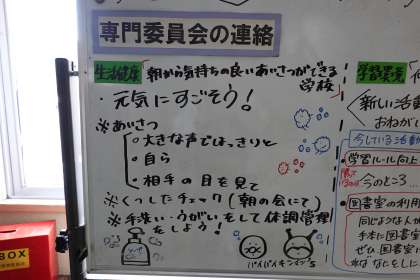 専門委員会の連絡
生活健康 朝から気持ちの良いあいさつができる
学校
・元気にすごそう!
※あいさつ
・大きな声ではっきりと
・自ら
・相手の目を見て
※くつしたチェック(朝の会にて)
※手洗い・うがいをして体調管理
をしよう!
バイバイキンマンズ
学習環境
<新しい活動
おねがい
今している活動
・学習ルール向上
今のところ
・図書室の利用
同じような人が
手本に図書室
ぜひ図書室
BOX